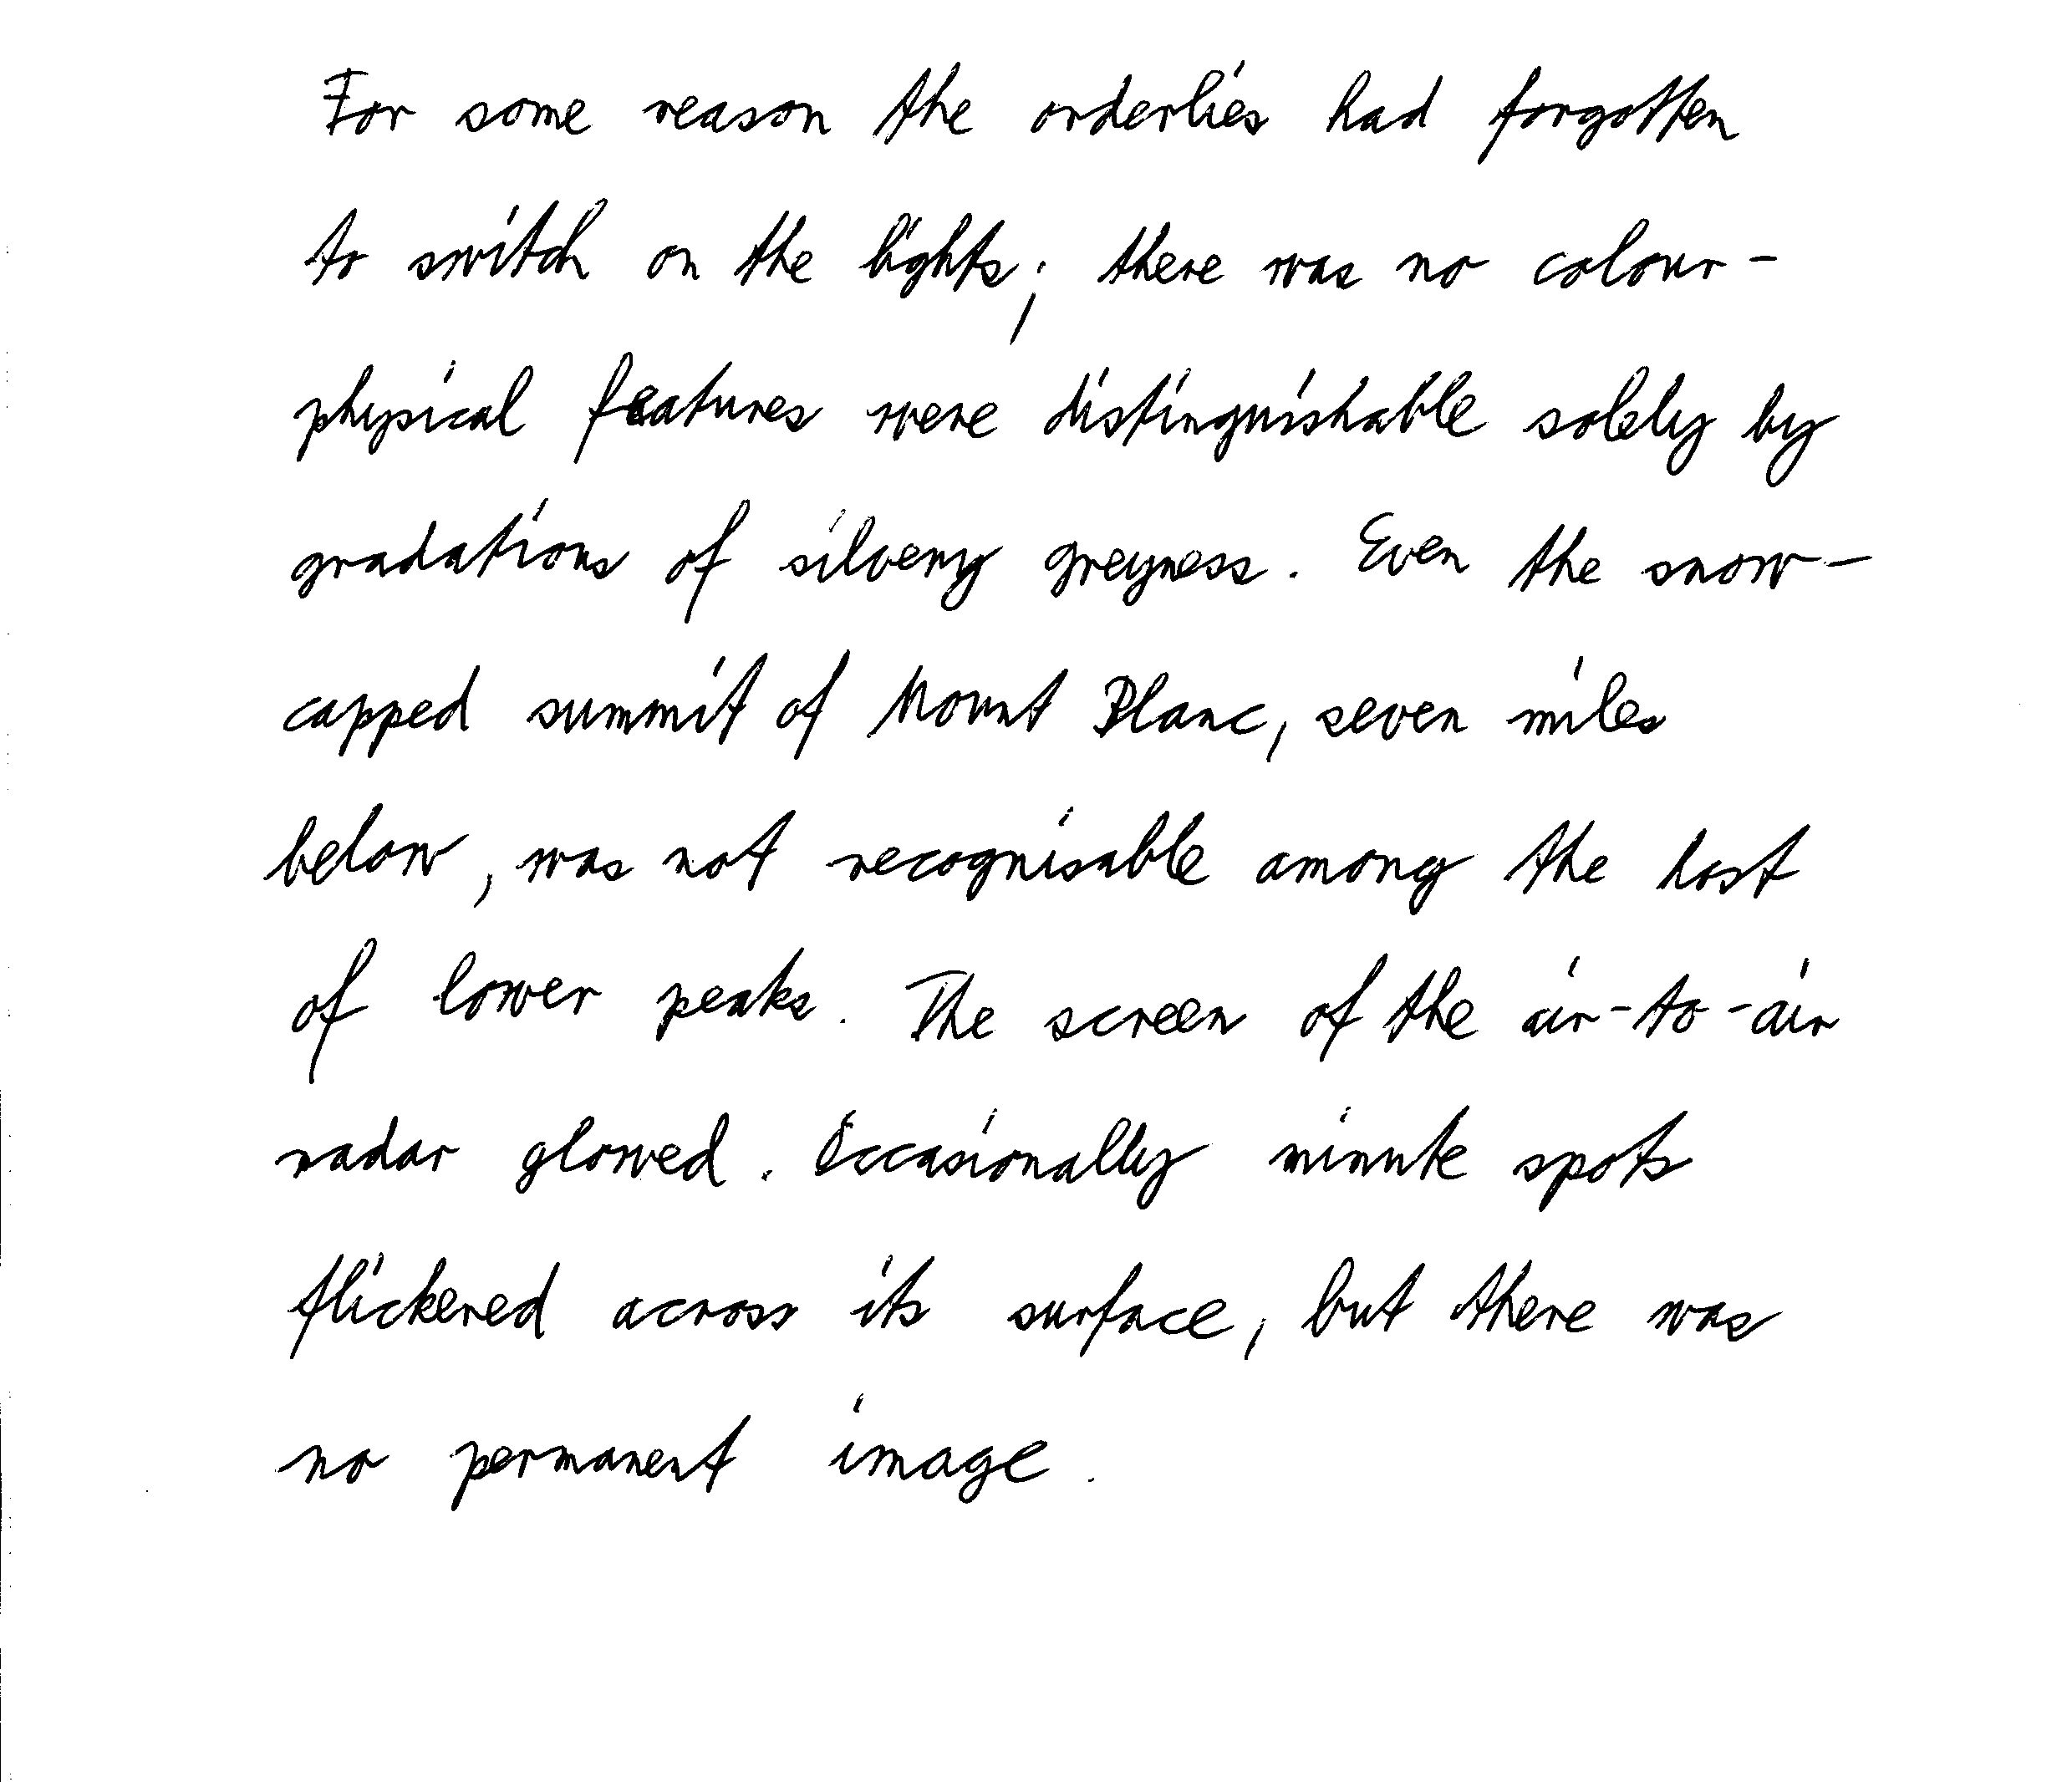 For some reason the orderlies had forgotten
to switch on the lights; there was no colour -
physical features were distinguishable solely by
gradations of silvery greyness. Even the snow-
capped summit of Mount Blanc, seven miles
below, was not recognisable among the host
of lower peaks. The screen of the air-to-air
radar glowed. Occasionally minute spots
flickered across its surface, but there was
no permanent image.